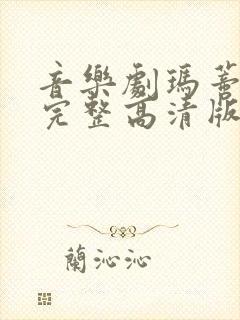 音樂劇瑪蒂
完整高清版
蘭沁沁